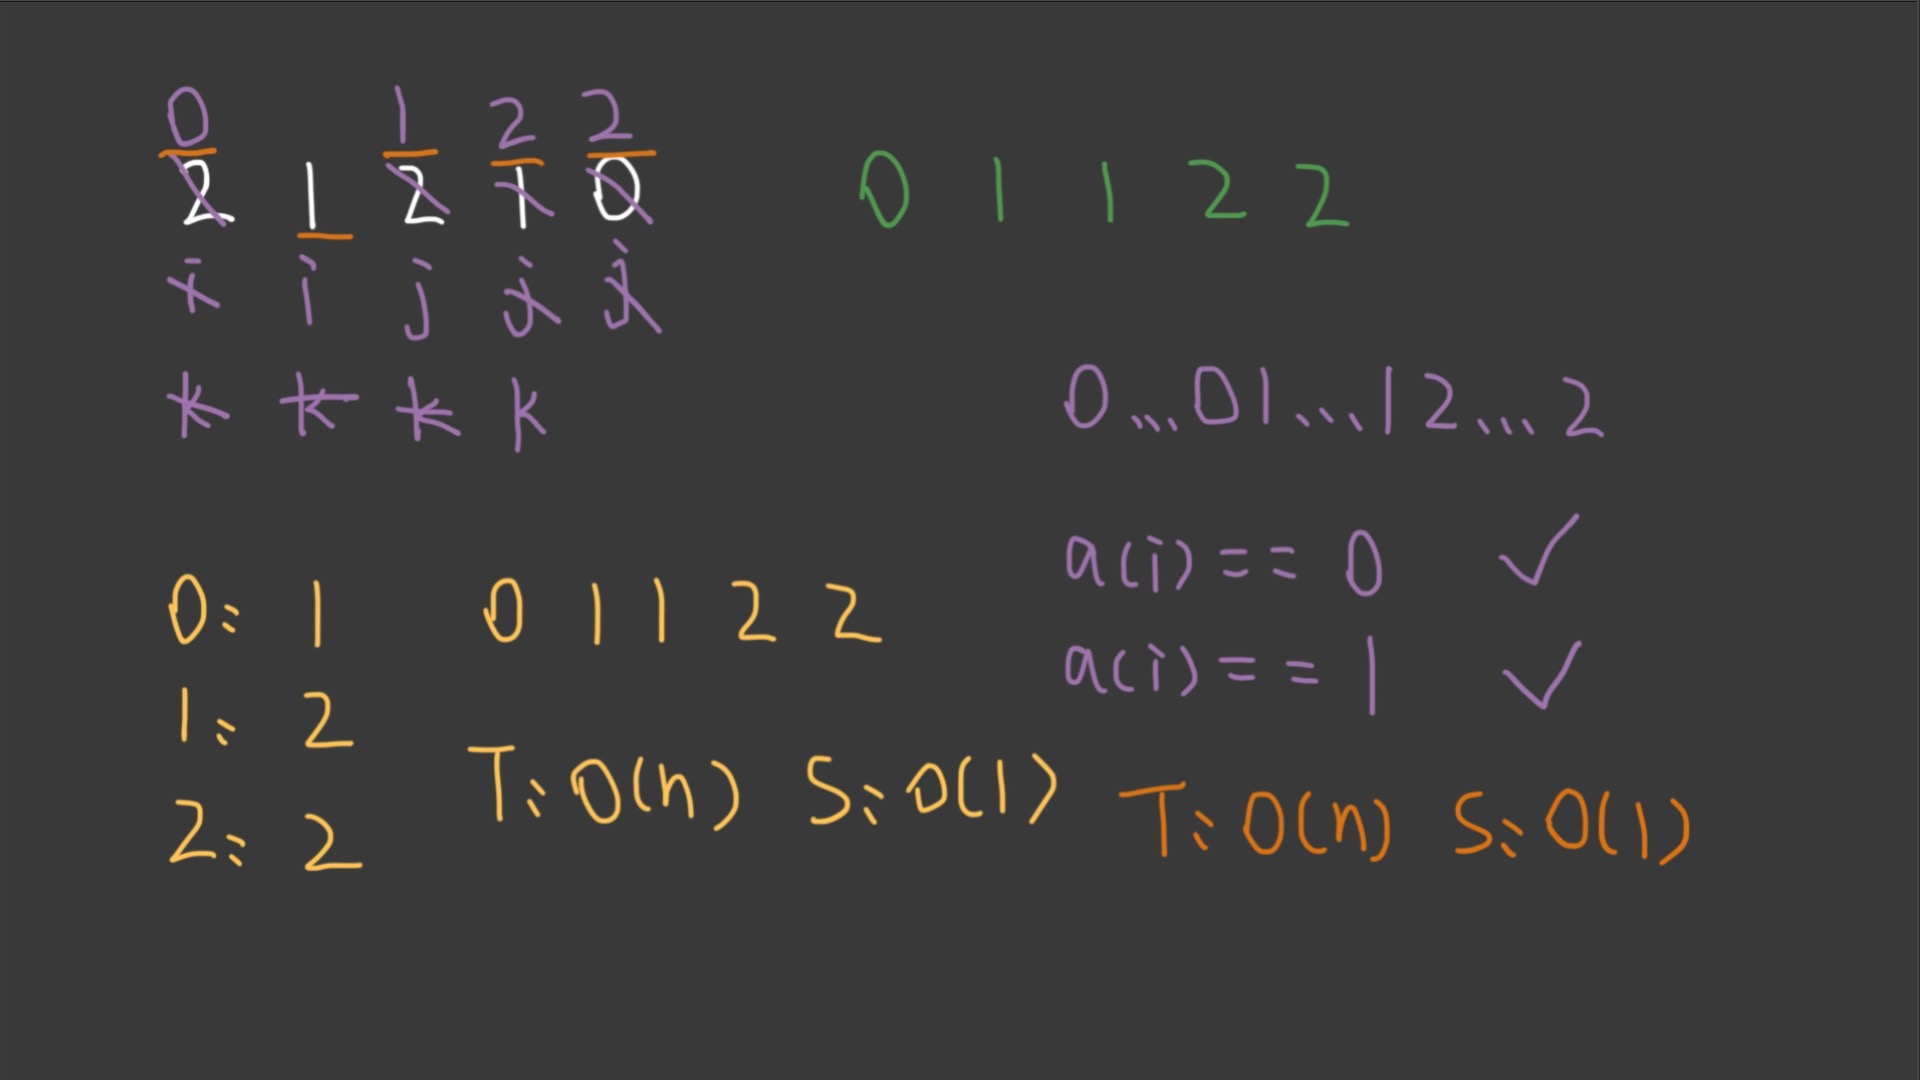 0 1 2 2
2 1 2 1 0
0 1 1 2 2
i i j j j
k k k k
0...01...12...2
a(i) == 0 ✓
a(i) == 1 ✓
0: 1
1: 2
2: 2
0 1 1 2 2
T: O(n) S: O(1)
T: O(n) S: O(1)